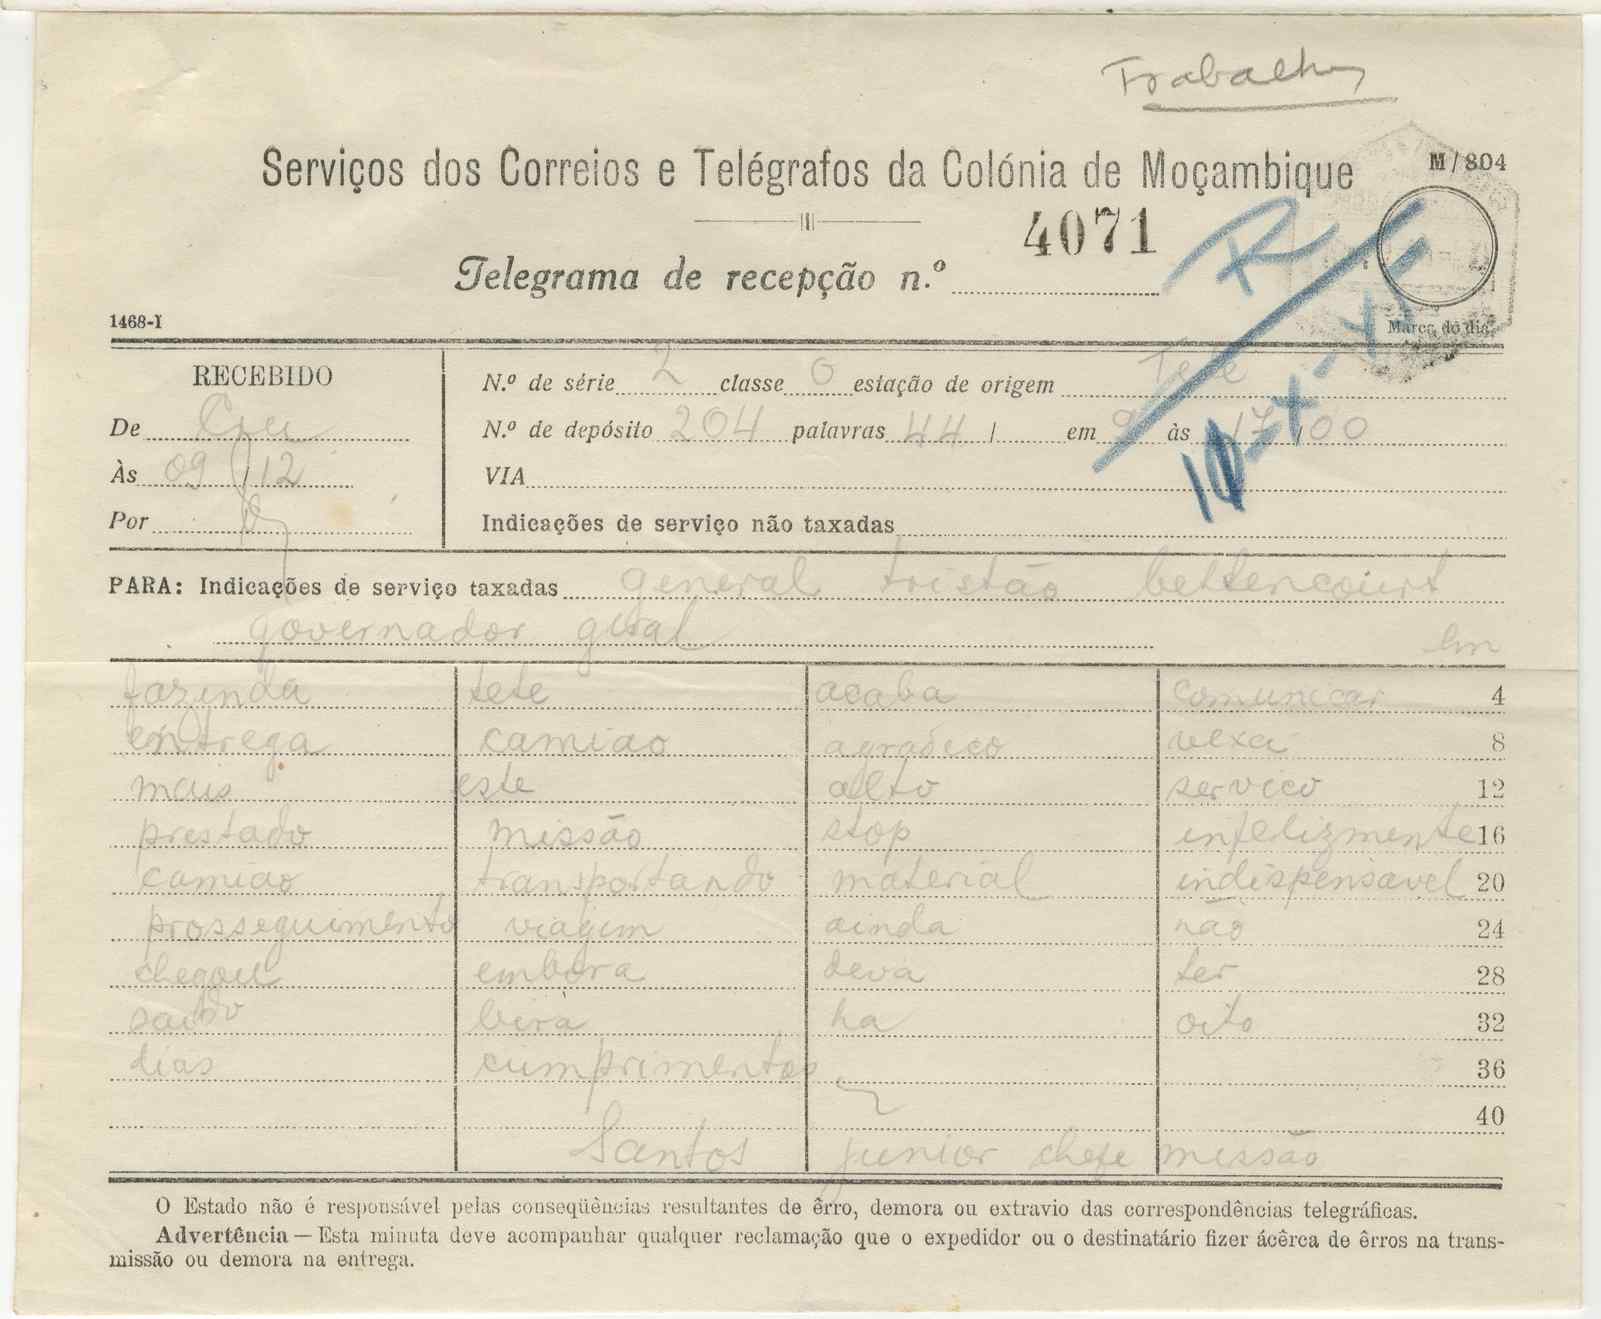 Trabalhos
Serviços dos Correios e Telégrafos da Colónia de Moçambique
M/804
4071
Telegrama de recepção n.º
R
10-X-XI
Marca do dia
1468-I
RECEBIDO
N.º de série 2 classe 0 estação de origem Tete
De
N.º de depósito 204 palavras 44 / em 9 às 17/00
Às 09/12
VIA
Por
Indicações de serviço não taxadas
PARA: Indicações de serviço taxadas general tristão bettencourt
governador geral
lm
fazenda tete acaba comunicar 4
entrega camiao agradeço vexa 8
mais este alto servico 12
prestado missão stop infelizmente 16
camiao transportando material indispensavel 20
prosseguimento viagem ainda não 24
chegou embora deva ter 28
saido beira ha oito 32
dias cumprimentos 36
40
Santos junior chefe missão
O Estado não é responsável pelas conseqüências resultantes de êrro, demora ou extravio das correspondências telegráficas.
Advertência — Esta minuta deve acompanhar qualquer reclamação que o expedidor ou o destinatário fizer ácêrca de êrros na trans-
missão ou demora na entrega.